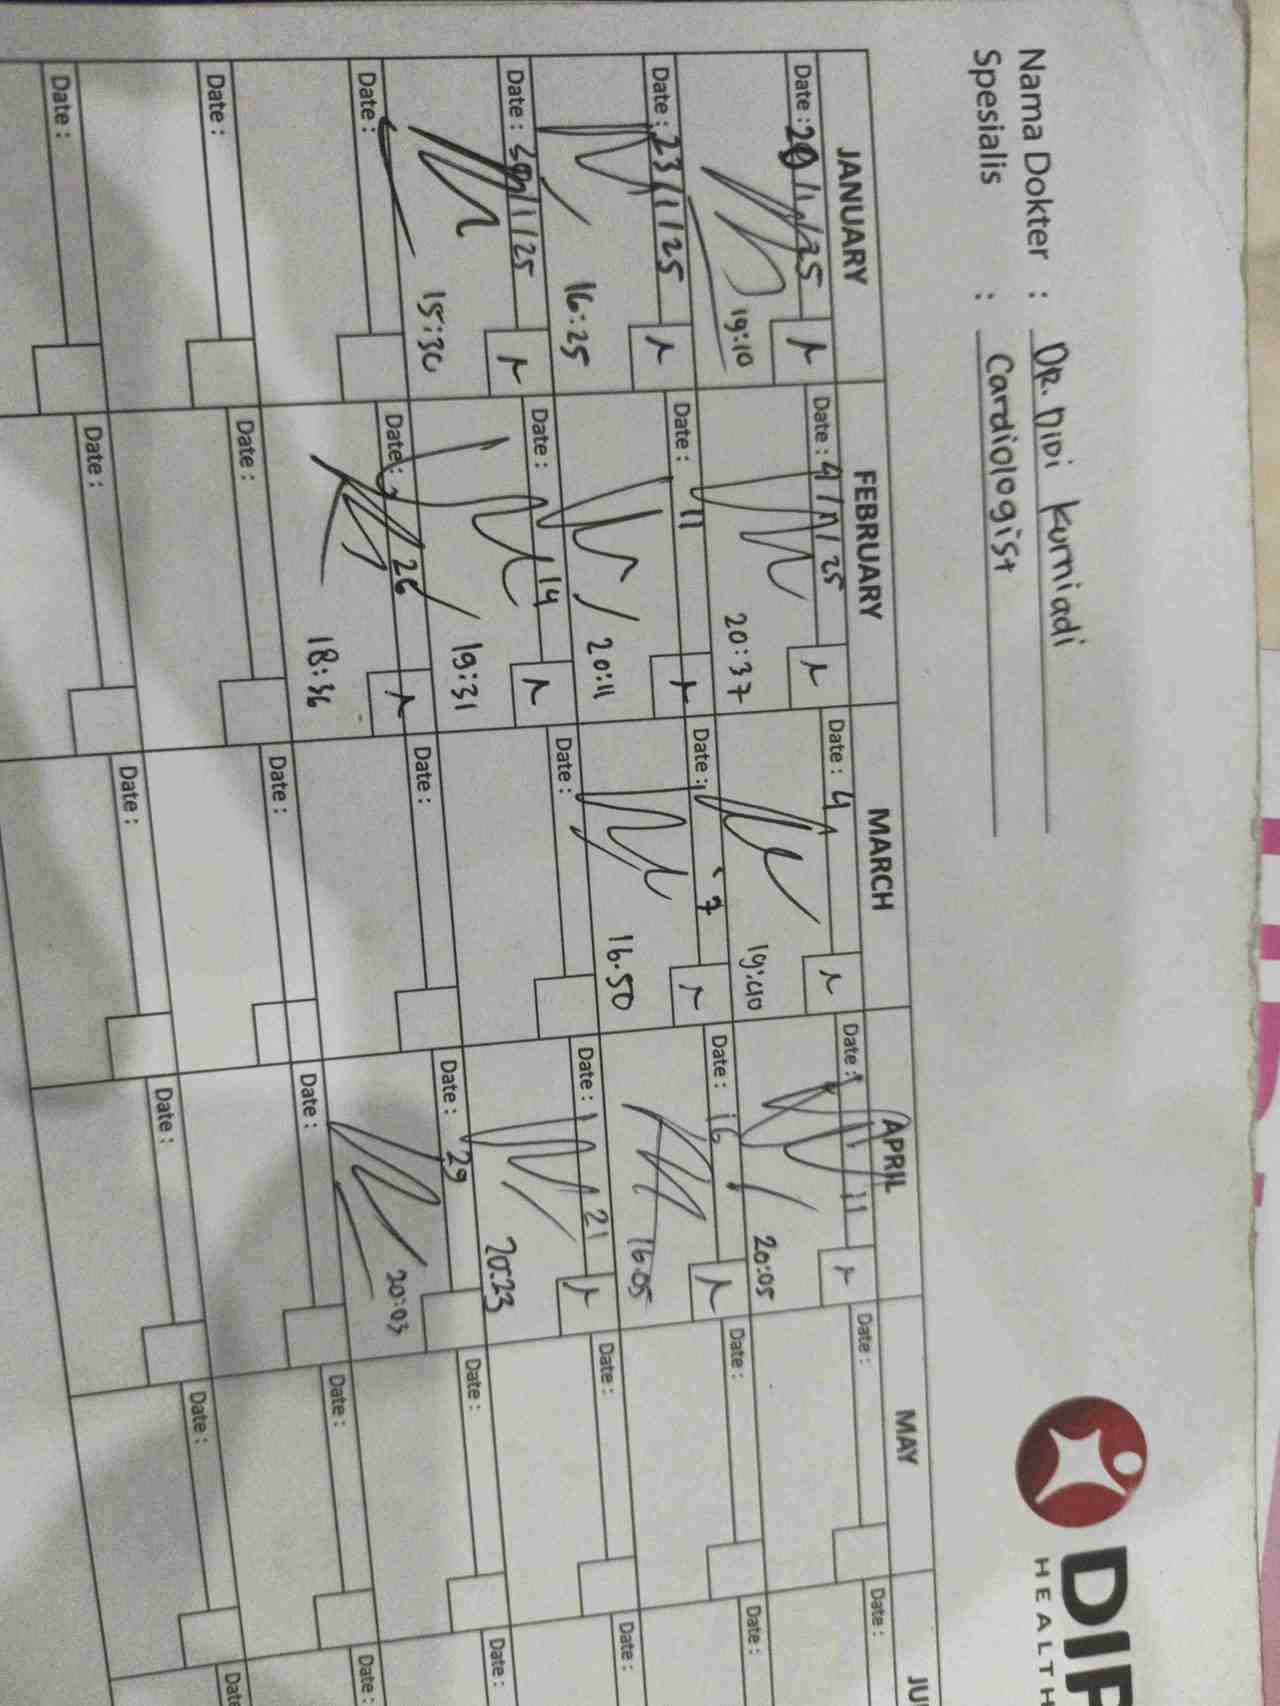 DIP
HEALTH
Nama Dokter : Dr. Didi Kurniadi
Spesialis : Cardiologist
JANUARY FEBRUARY MARCH APRIL MAY JU
Date : /1/25 Date : 4/ /25 Date : 4 Date : 11 Date : Date :
19:10 20:37 19:40 20:05
Date : 23/1/25 Date : 11 Date : 7 Date : 16 Date : Date :
16:25 20:11 16.50 16.05
Date : /1/25 Date : 14 Date : Date : 21 Date : Date :
15:30 19:31 20.23
Date : Date : 26 Date : Date : 29 Date : Date :
18:36 20:03
Date : Date : Date : Date : Date : Date :
Date : Date : Date : Date : Date : Date